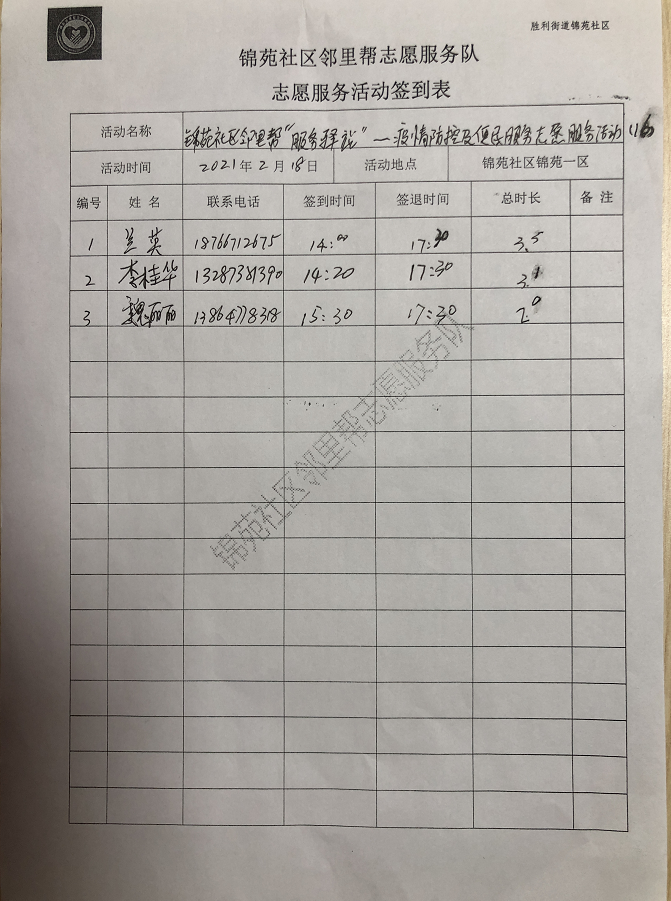 胜利街道锦苑社区
锦苑社区邻里帮志愿服务队
志愿服务活动签到表
活动名称 锦苑社区邻里帮“服务驿站”—疫情防控及便民服务志愿服务活动(16
活动时间 2021年2月18日 活动地点 锦苑社区锦苑一区
编号 姓名 联系电话 签到时间 签退时间 总时长 备注
1 兰英 18766712675 14:00 17:30 3.5
2 李桂华 13287381390 14:20 17:30 3.1
3 魏丽丽 13864778318 15:30 17:30 2.0
锦苑社区邻里帮志愿服务队